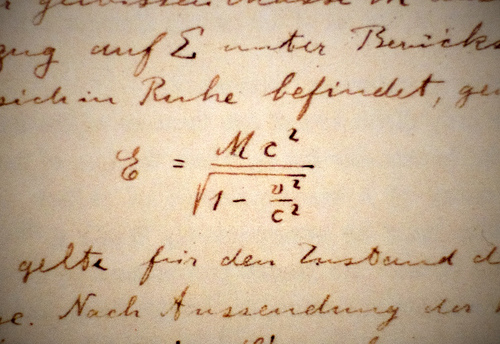 gewissen Masse M
auf E unter
sich in Ruhe befindet,
E = Mc² / √(1 - v²/c²)
gelte für den Zustand
Nach Aussendung der